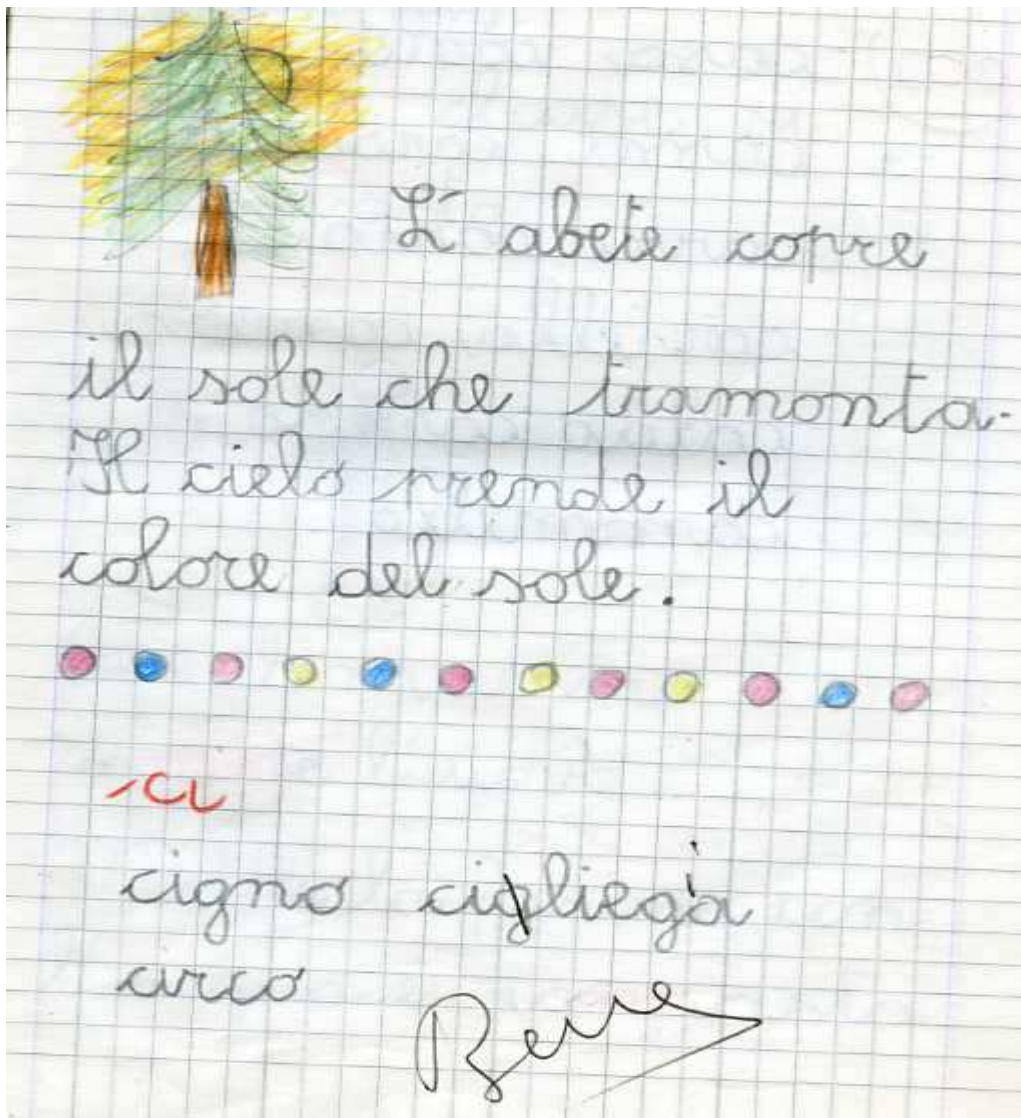 L' abete copre
il sole che tramonta.
Il cielo prende il
colore del sole.
ci
cigno cigliega
circo
Bene